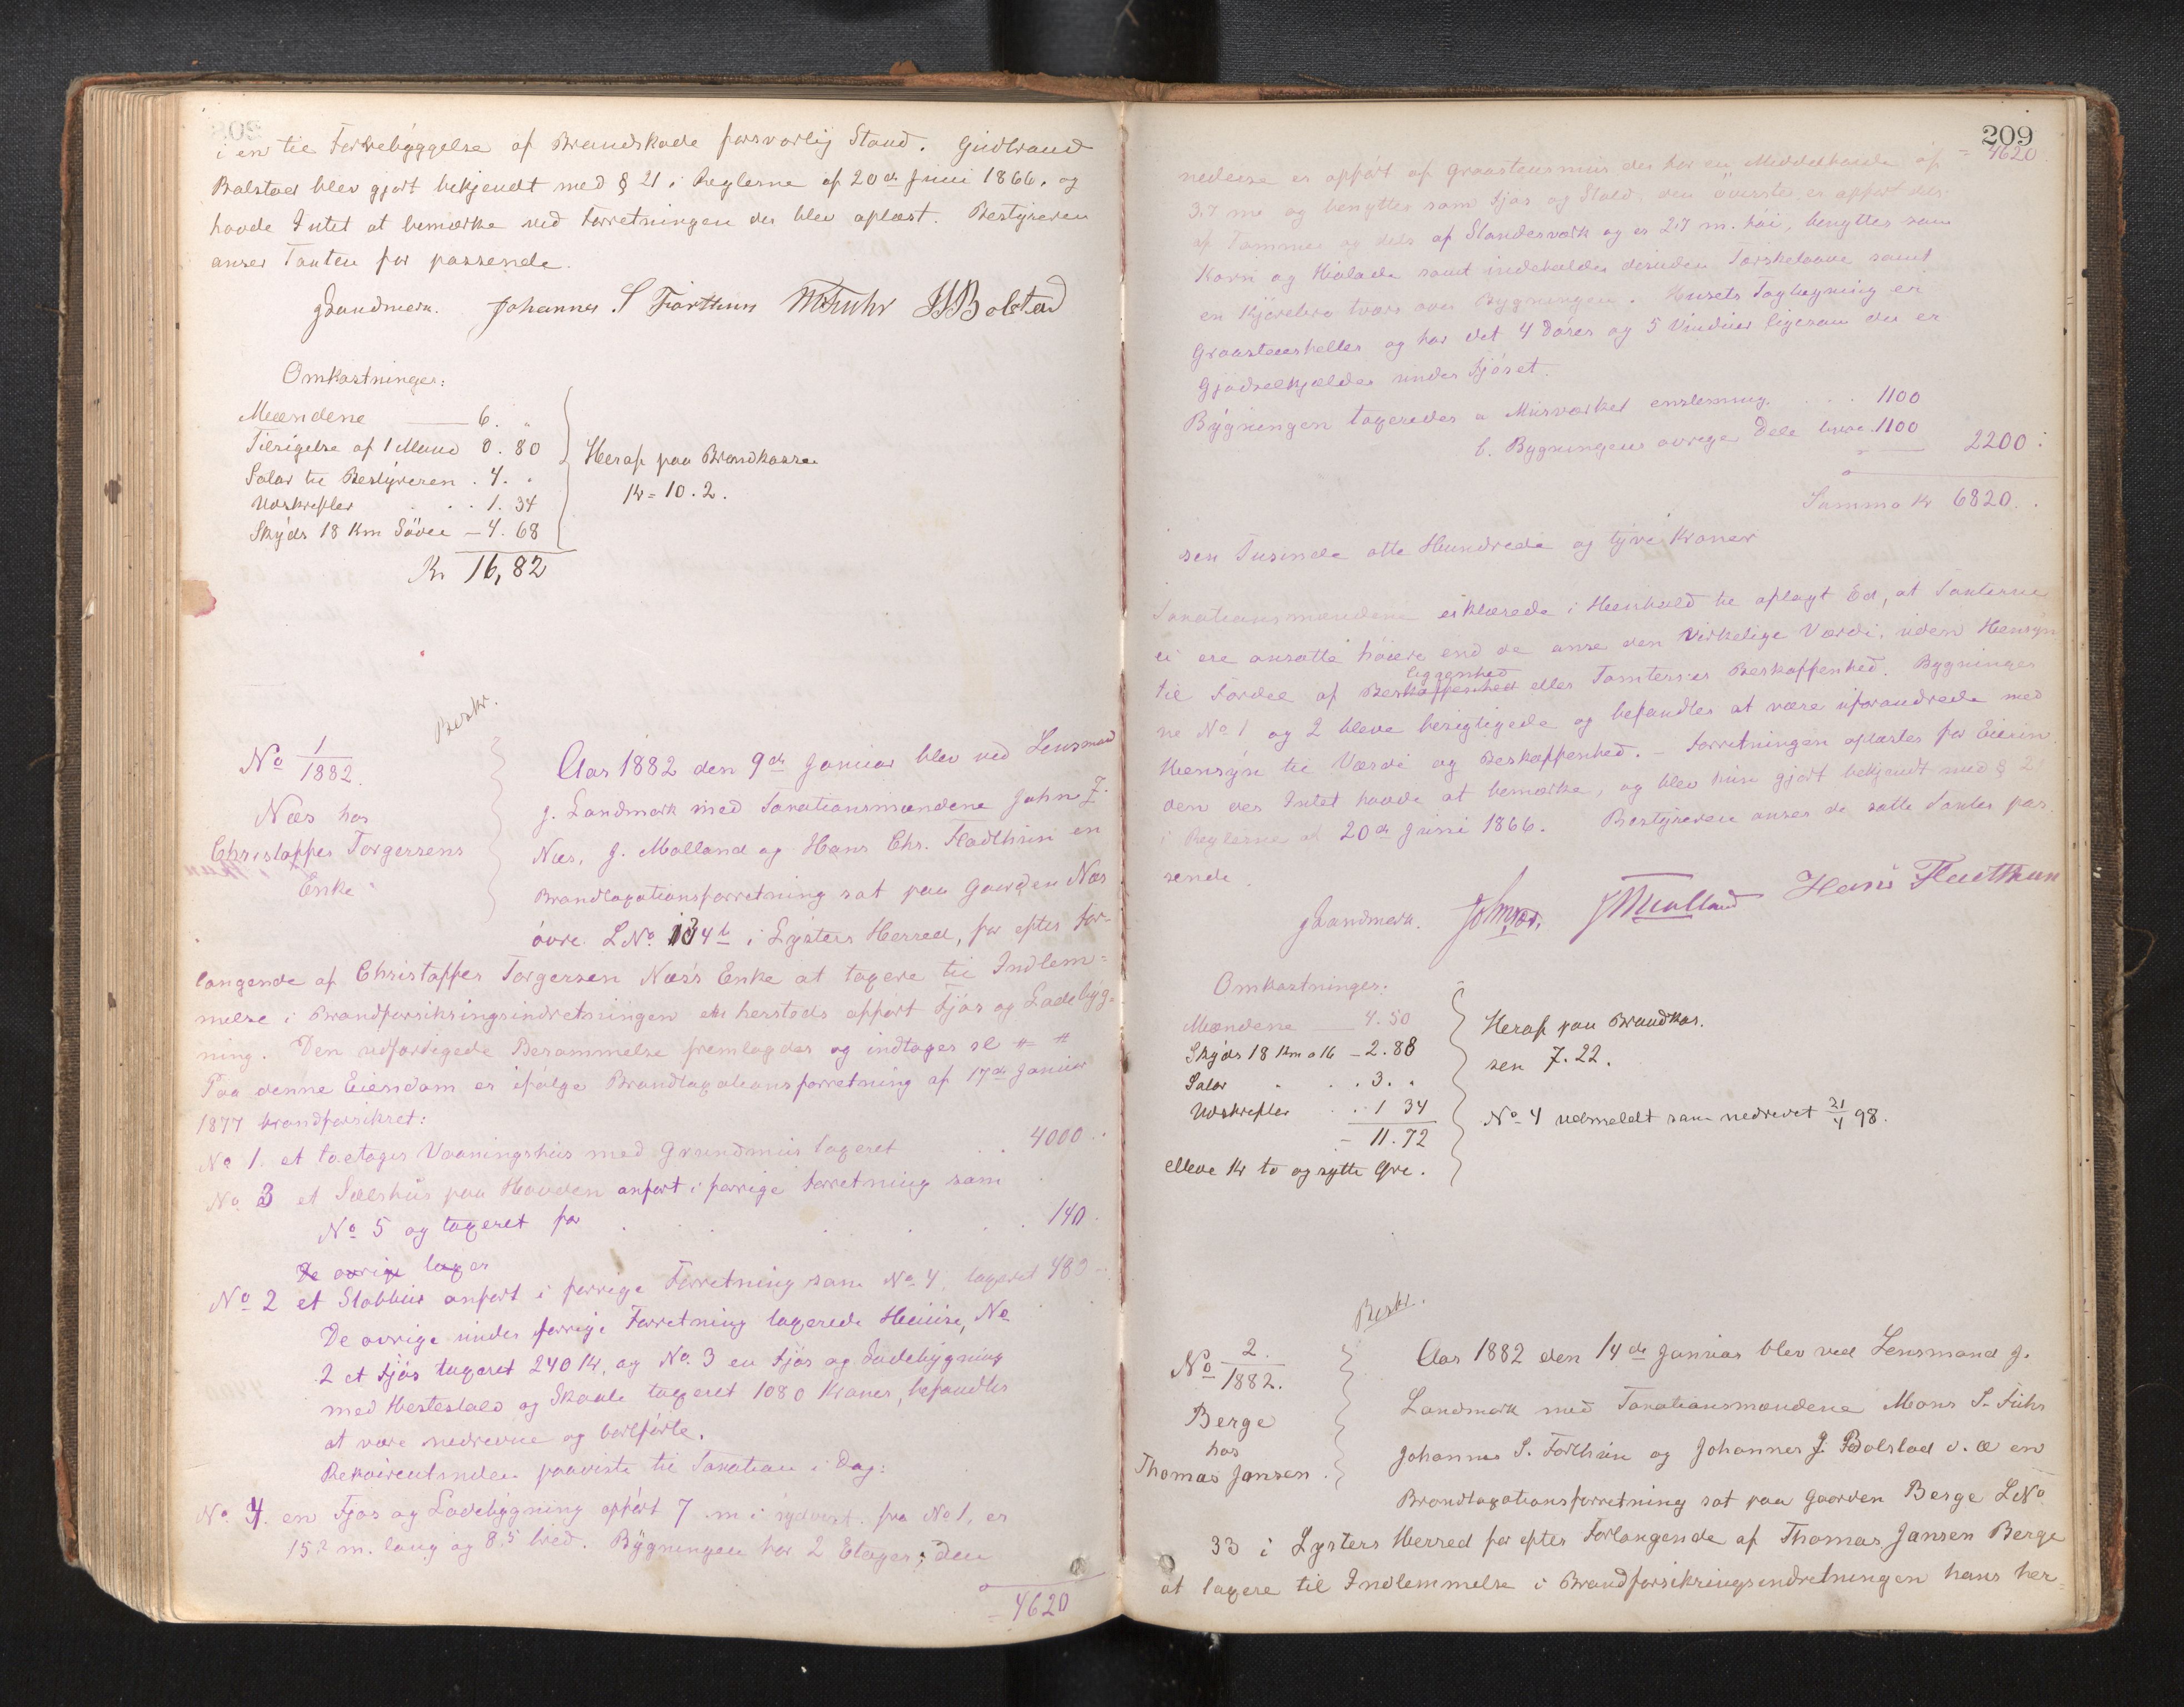 i en til Forrebyggelse af Brandskade forsvarlig Stand. Gudbrand
Bolstad blev gjort bekjendt med § 21 i Reglerne af 20de Juni 1866. og
havde Intet at bemærke ved Forretningen der blev oplæst. Bestyreren
anser Taxten for passende.
JLandmerk. Johannes S Fiorthun MSFuhr JJBolstad
Omkostninger:
Mændene 6. "
Tilsigelse af 1 Mand 0. 80
Salar til Bestyreren . 4. "
Udskrifter . . . 1. 34
Skyds 18 Km Söveien — 4. 68
Kr 16,82
Heraf paa Brandkassen
Kr = 10. 2.
Beskr.
No 1/1882.
Næs hos
Christoffer Torgersens
Enke
Aar 1882 den 9de Januar blev ved Lensmand
J. Landmark med Taxationsmændene John J.
Næs, J. Molland og Hans Chr. Fladthun en
Brandtaxationsforretning sat paa Gaarden Næs
övre LNo. 134b i Lysters Herred, for efter For-
langende af Christoffer Torgersen Næs's Enke at taxere til Indlem=
melse i Brandforsikringsindretningen et herstæds opført Fjøs og Ladebyg=
ning. Den udfærdigede Berammelse fremlagdes og indtages sl # #
Paa denne Eiendom er ifølge Brandtaxationsforretning af 17de Januar
1877 brandforsikret:
No 1. et toetages Vaaningshus med Grundmur taxeret . . 4000 .
No 3 et Sælshus paa Hovden anført i forrige Forretning som
No 5 og taxeret for . . . . . 140.
De øvrige taxer
No 2 et Stabbur anført i forrige Forretning som No 4, taxeret 480
De øvrige under forrige Forretning taxerede Huuse, No
2 et Fjøs taxeret 240 Kr, og No. 3 en Fjøs og Ladebygning
med Hestestald og Skaale taxeret 1080 Kroner, befandtes
at være nedrevne og bortførte.
Rekvirentinden paaviste til Taxation i Dag:
No. 4. en Fjøs og Ladebygning opført 7 m i sydvest fra No 1, er
15.2 m. lang og 8.5 bred. Bygningen har 2 Etager; den
= 4620
209
= 4620
nederse er opført af Graastensmur der har en Middelhøide af
3.7 m og benyttes som Fjøs og Stald, den överste er opført dels
af Tømmer og dels af Standerværk og er 2.7 m. høi, benyttes som
Korn og Hølade samt indeholder desuden Tærskelaave samt
en Kjørebro tværs over Bygningen. Husets Tagtegning er
Graasteenheller og har det 4 Døre og 5 Vinduer ligesom der er
Gjødselkjælder under Fjøset.
Bygningen taxeredes a Murværket ensteming . . . 1100
b. Bygningens øvrige Dele . 1100 2200 :
Summa Kr 6820 .
sex Tusinde otte Hundrede og tyve Kroner
Taxationsmændene erklærede i Henhold til aflagt Ed, at Taxterne
ei ere ansatte høiere end de anse den virkelige Værdi, uden Hensyn
til Fordel af Beskaffenhed liggenhed eller Tomternes Beskaffenhed. Bygninger
ne No 1 og 2 bleve besigtigede og befandtes at være uforandrede med
Hensyn til Værdi og Beskaffenhed. – Forretningen oplæstes for Eierin
den der Intet havde at bemærke, og blev hun gjort bekjendt med § 21
i Reglerne af 20de Juni 1866. Bestyreren anser de satte Taxter pas
sende.
JLandmerk. JohnNæs. JMolland Hans Fladthun
Omkostninger:
Mændene 4. 50
Skyds 18 Km a 16 – 2. 88
Salar . . . 3. "
Udskrifter . . 1 34
= 11. 72
elleve Kr to og sytti Øre.
Heraf paa Brandkas.
sen 7. 22.
No 4 udmeldt som nedrevet 21/4 98.
Beskr.
No 2./1882.
Berge
hos
Thomas Jansen.
Aar 1882 den 14de Januar blev ved Lensmand J.
Landmark med Taxationsmændene Mons S. Fuhr
Johannes S. Forthun og Johannes J. Bolstad o. a en
Brandtaxationsforretning sat paa Gaarden Berge LNo
33 i Lysters Herred for efter Forlangende af Thomas Jansen Berge
at taxere til Indlemmelse i Brandforsikringsindretningen hans her=